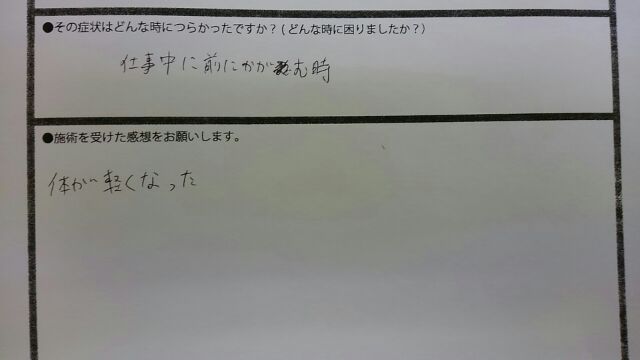 ●その症状はどんな時につらかったですか？(どんな時に困りましたか？)
仕事中に前にかがむ時
●施術を受けた感想をお願いします。
体が軽くなった